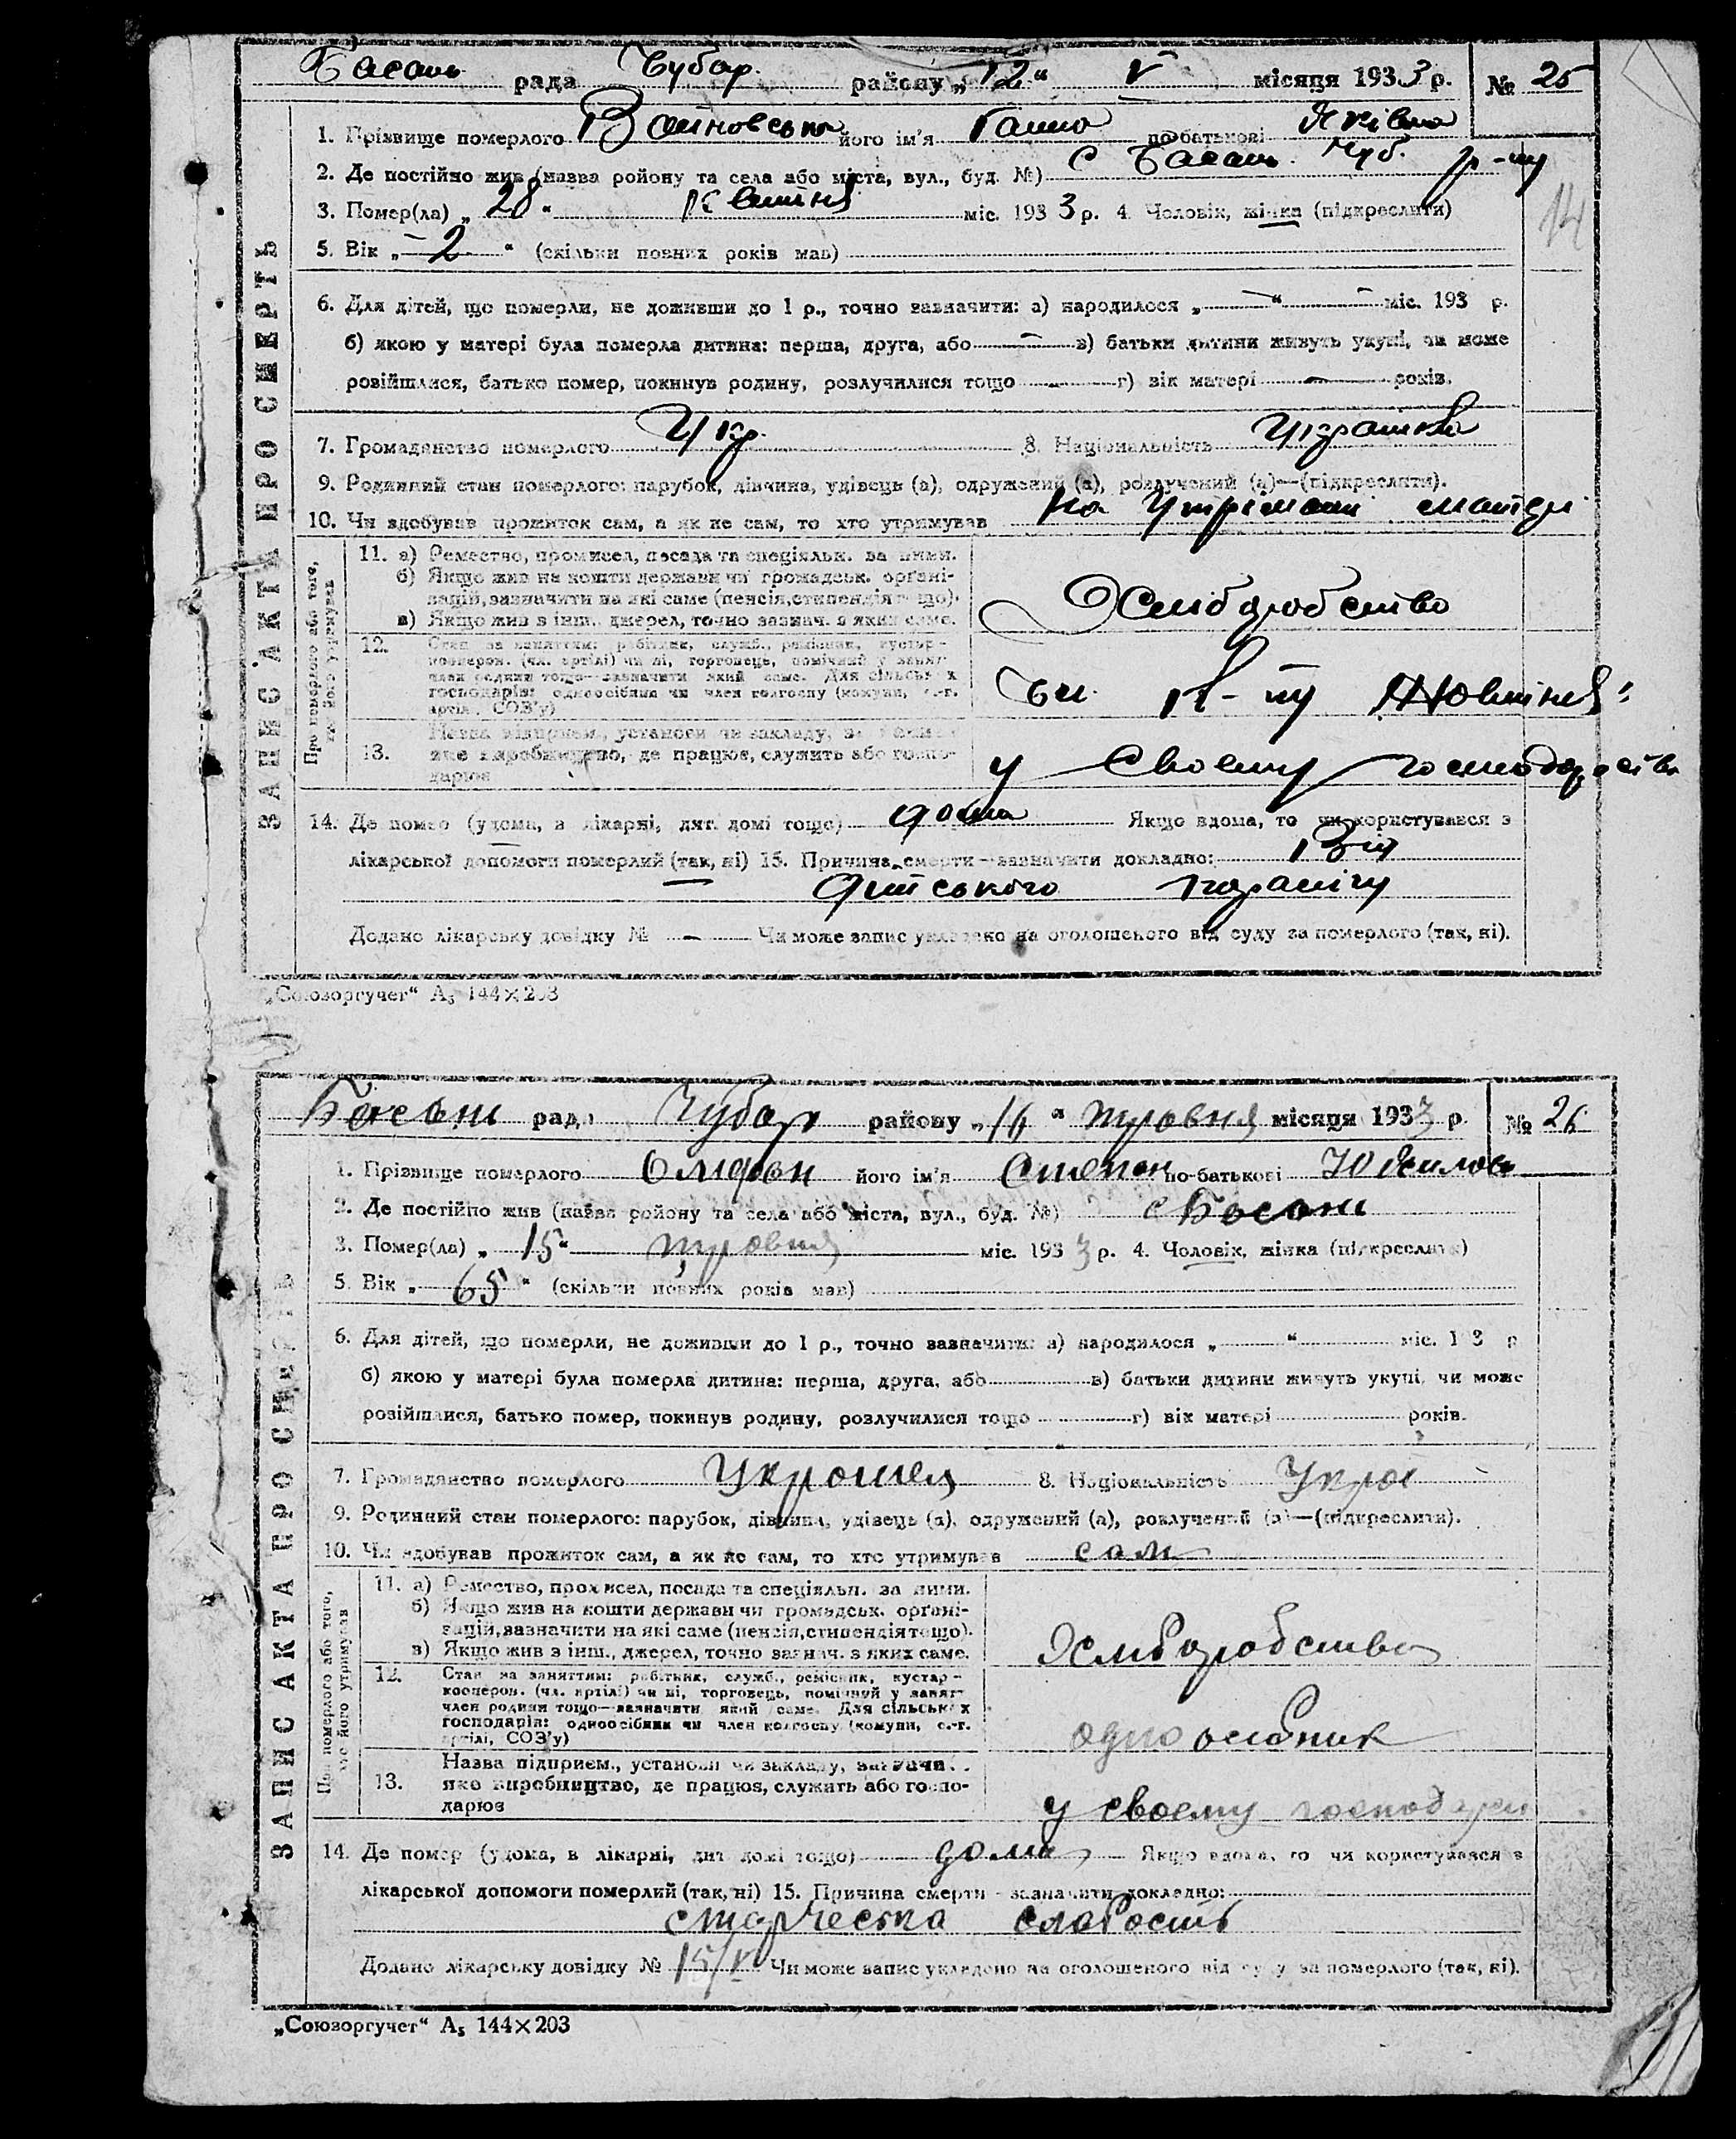 Басань рада Чубар. району „12“ V місяця 1933 р. № 25
1. Прізвище померлого його ім'я Ганна по батькові Яківна
2. Де постійно жив (назва ройону та села або міста, вул., буд. №) с Басань Чуб. р-ну
3. Помер(ла) „28“ Квітня міс. 1933 р. 4. Чоловік, жінка (підкреслити)
14
5. Вік „2“ (скільки повних років мав)
6. Для дітей, що померли, не доживши до 1 р., точно вазначити: а) народилося „—“ — міс. 193 р.
б) якою у матері була померла дитина: перша, друга, або — в) батьки дитини живуть укупі, чи може
розійшлися, батько помер, покинув родину, розлучилися тощо — г) вік матері — років.
7. Громаданство померлого Укр. 8. Національність Українка
9. Родинний стан померлого: парубок, дівчина, удівець (а), одружений (а), розлучений (а)—(підкреслити).
10. Чи здобував прожиток сам, а як не сам, то хто утримував на утріманні матери
ЗАПИС АКТА ПРО СМЕРТЬ
Про померлого або того, хто його утримував
11. а) Ремество, промисел, посада та спеціяльн. за ними.
б) Якщо жив на кошти держави чи громадськ. орґані-
зацій, зазначити на які саме (пенсія, стипендія тощо).
в) Якщо жив з інш. джерел, точно зазнач. з яких саме.
Хліборобство
12. Стан за заняттям: робітник, служб., ремісник, кустар-
кооперов. (чл. артілі) чи ні, торговець, помічний у занят.
член родини тощо—зазначити який саме. Для сільських
господарів: одноосібник чи член колгоспу (комуни, с.-г.
артілі, СОЗ'у)
чл. к-пу
13. Назва підприєм., установи чи закладу,
яке виробництво, де працює, служить або госпо-
дарює
у своєму господарстві
14. Де помер (удома, в лікарні, дит. домі тощо) дома Якщо вдома, то чи користувався з
лікарської допомоги померлий (так, ні) 15. Причина смерти — зазначити докладно: Від
дитського параліч
Додано лікарську довідку № — Чи може запис укладено на оголошеного від суду за померлого (так, ні).
„Союзоргучет“ А₅ 144×203
Басань рада Чубар району „16“ травня місяця 1933 р. № 26
1. Прізвище померлого його ім'я Степан по-батькові
2. Де постійно жив (назва ройону та села або міста, вул., буд. №) с Басань
3. Помер(ла) „15“ травня міс. 1933 р. 4. Чоловік, жінка (підкреслити)
5. Вік „65“ (скільки повних років мав)
6. Для дітей, що померли, не доживши до 1 р., точно вазначити: а) народилося „ “ міс. 193 р
б) якою у матері була померла дитина: перша, друга, або в) батьки дитини живуть укупі, чи може
розійшлися, батько помер, покинув родину, розлучилися тощо г) вік матері років.
7. Громаданство померлого 8. Національність Укра
9. Родинний стан померлого: парубок, дівчина, удівець (а), одружений (а), розлучений (а)—(підкреслити).
10. Чи здобував прожиток сам, а як не сам, то хто утримував сам
ЗАПИС АКТА ПРО СМЕРТЬ
Про померлого або того, хто його утримував
11. а) Ремество, промисел, посада та спеціяльн. за ними.
б) Якщо жив на кошти держави чи громадськ. орґані-
зацій, зазначити на які саме (пенсія, стипендія тощо).
в) Якщо жив з інш., джерел, точно зазнач. з яких саме.
Хліборобство
12. Стан за заняттям: робітник, служб., ремісник, кустар-
кооперов. (чл. артілі) чи ні, торговець, помічний у занят.
член родини тощо—зазначити який саме. Для сільських
господарів: одноосібник чи член колгоспу (комуни, с.-г.
артілі, СОЗ'у)
одноосібник
13. Назва підприєм., установи чи закладу, зазначи.
яке виробництво, де працює, служить або госпо-
дарює
у своему господарт
14. Де помер (удома, в лікарні, дит домі тощо) дома Якщо вдома, то чи користувався з
лікарської допомоги померлий (так, ні) 15. Причина смерти — зазначити докладно:
старческа слабость
Додано лікарську довідку № 15/V Чи може запис укладено на оголошеного від суду за померлого (так, ні).
„Союзоргучет“ А₅ 144×203